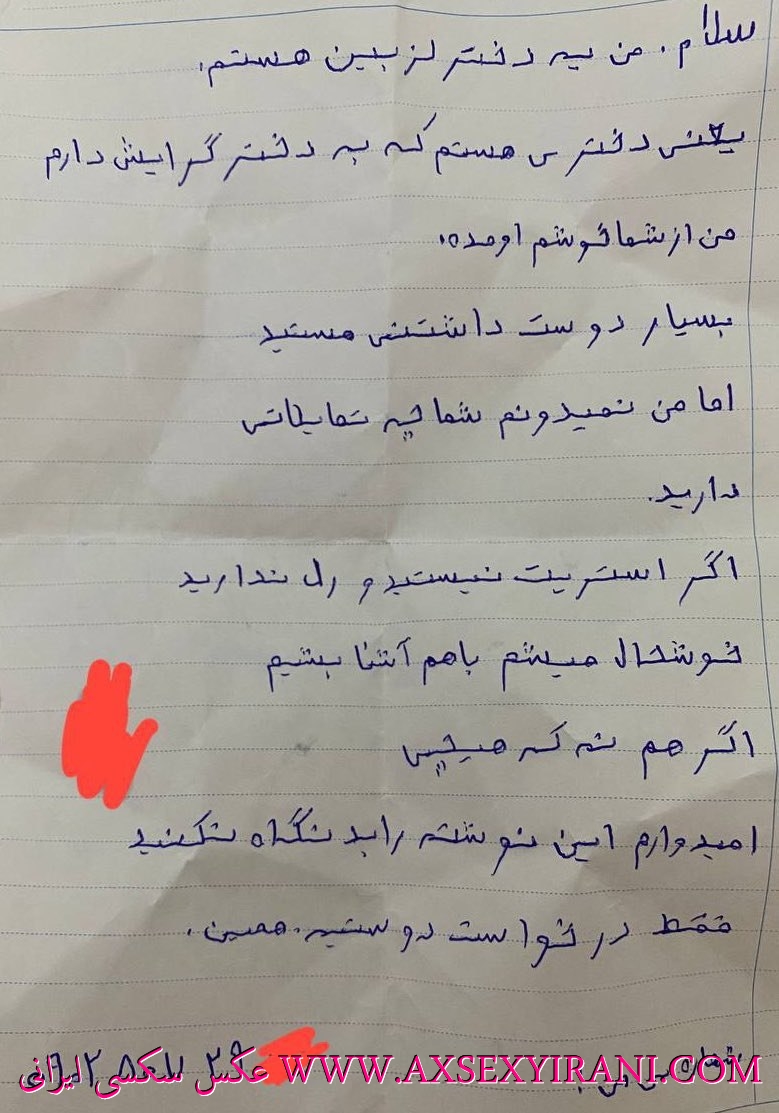 سلام. من یه دختر لزبین هستم.
یعنی دختری هستم که به دختر گرایش دارم
من از شما خوشم اومده.
بسیار دوست داشتنی هستید
اما من نمیدونم شما چه تمایلاتی
دارید.
اگر استریت نیستید و رل ندارید
خوشحال میشم باهم آشنا بشیم
اگر هم نه که هیچی
امیدوارم این نوشته را بد نگاه نکنید
فقط درخواست دوستیه. همین.
شماره من
عکس سکسی ایرانی WWW.AXSEXYIRANI.COM